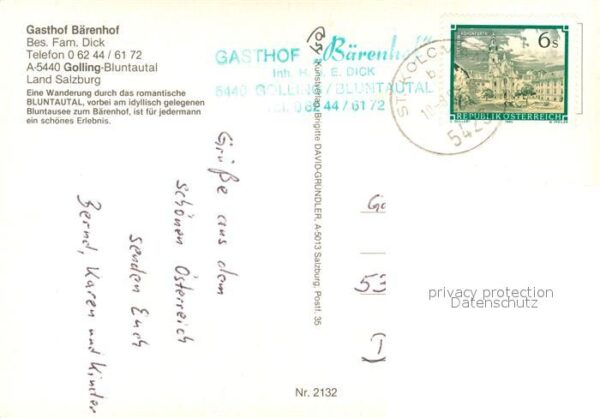 Gasthof Bärenhof
Bes. Fam. Dick
Telefon 0 62 44 / 61 72
A-5440 Golling-Bluntautal
Land Salzburg
Eine Wanderung durch das romantische
BLUNTAUTAL, vorbei am idyllisch gelegenen
Bluntausee zum Bärenhof, ist für jedermann
ein schönes Erlebnis.
GASTHOF „Bärenhof"
Inh. H. E. DICK
5440 GOLLING / BLUNTAUTAL
Tel. 0 62 44 / 61 72
Grüße aus dem
schönen Österreich
senden Euch
Bernd, Karen und Kinder
Kunstverlag Brigitte DAVID-GRÜNDLER, A-5013 Salzburg, Postf. 35
Nr. 2132
6 S
REPUBLIK ÖSTERREICH
ST. KOLO
542
53
privacy protection
Datenschutz